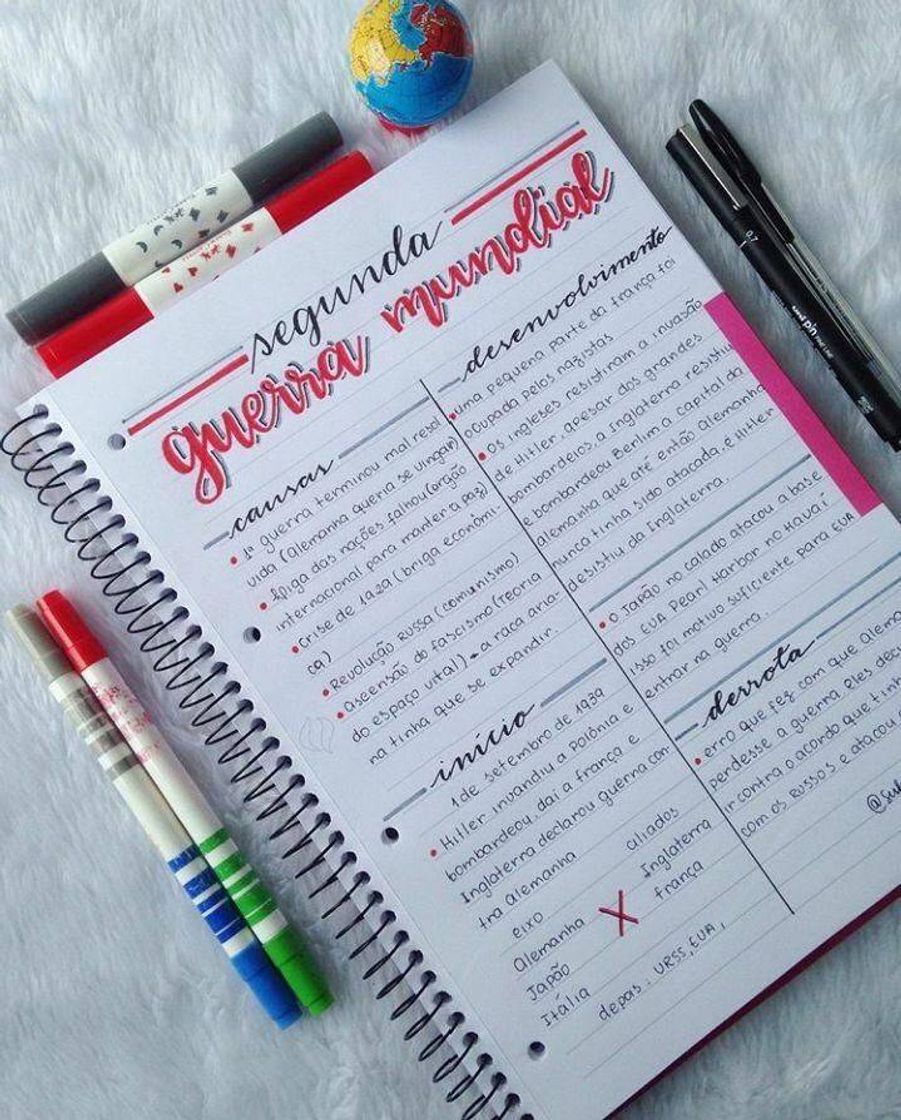 segunda
guerra mundial
causas
1ª guerra terminou mal resol
vida (alemanha queria se vingar)
liga das nações falhou (orgão
internacional para manter a paz)
crise de 1929 (briga econômi-
ca)
Revolução Russa (comunismo)
ascensão do fascismo (Teoria
do espaço vital) → a raça aria-
na tinha que se expandir.
início
1 de setembro de 1939
Hitler invandiu a Polônia e
bombardeou, daí a frança e
Inglaterra declarou guerra con-
tra alemanha
eixo aliados
Alemanha X Inglaterra
Japão frança
Itália
depois: URSS, EUA,
desenvolvimento
uma pequena parte da frança foi
ocupada pelos nazistas
Os ingleses resistiram a invasão
de Hitler, apesar dos grandes
bombardeios, a Inglaterra resistiu
e bombardeou Berlim a capital da
alemanha que até então Alemanha
nunca tinha sido atacada, e Hitler
desistiu da Inglaterra.
O JAPÃO no calado atacou a base
dos EUA Pearl Harbor no Havaí
isso foi motivo suficiente para EUA
entrar na guerra.
derrota
erro que fez com que
perdesse a guerra eles
ir contra o acordo que
com os russos e atacou
0.7
uni pin